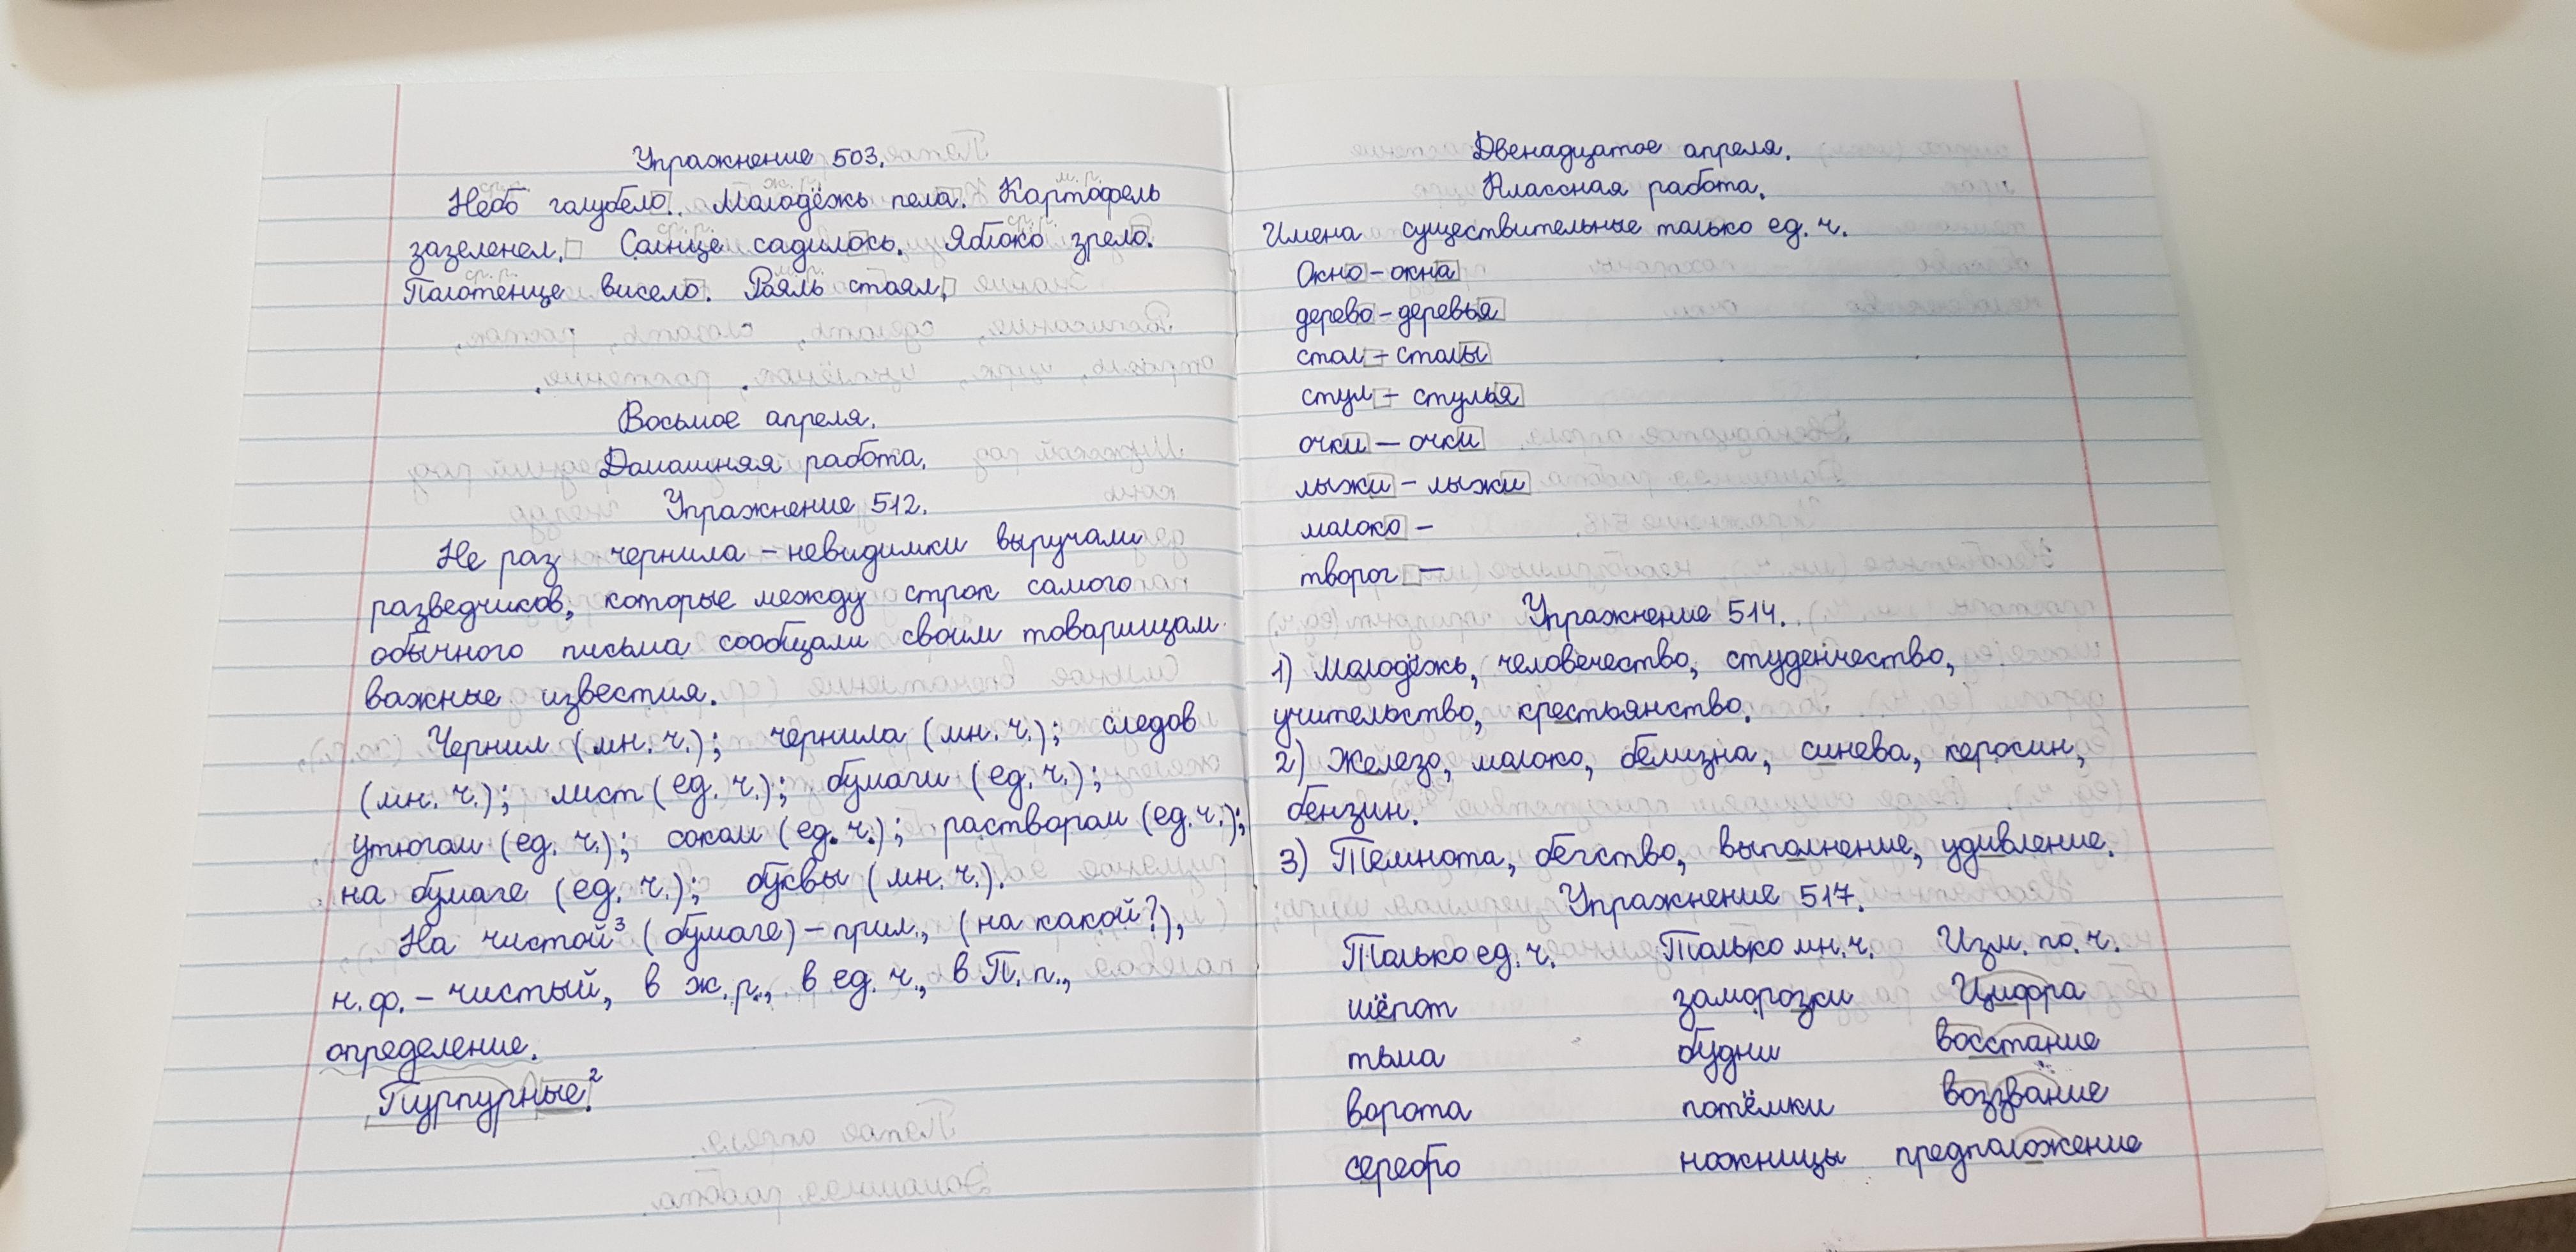 Упражнение 503.
ср.р. ж.р. м.р.
Небо голубело. Молодёжь пела. Картофель
ср.р. ср.р.
зазеленел. Солнце садилось. Яблоко зрело.
ср.р. м.р.
Полотенце висело. Рояль стоял.
Восьмое апреля.
Домашняя работа.
Упражнение 512.
Не раз чернила – невидимки выручали
разведчиков, которые между строк самого
обычного письма сообщали своим товарищам
важные известия.
Чернил (мн. ч.); чернила (мн. ч.); следов
(мн. ч.); лист (ед. ч.); бумаги (ед. ч.);
утюгом (ед. ч.); соком (ед. ч.); раствором (ед. ч.);
на бумаге (ед. ч.); буквы (мн. ч.).
На чистой³ (бумаге) – прил., (на какой?),
н. ф. – чистый, в ж. р., в ед. ч., в П. п.,
определение.
Пурпурные.²
Двенадцатое апреля.
Классная работа.
Имена существительные только ед. ч.
Окно – окна
дерево – деревья
стол – столы
стул – стулья
очки – очки
лыжи – лыжи
молоко –
творог –
Упражнение 514.
1) Молодёжь, человечество, студенчество,
учительство, крестьянство.
2) Железо, молоко, белизна, синева, керосин,
бензин.
3) Темнота, бегство, выполнение, удивление.
Упражнение 517.
Только ед. ч. Только мн. ч. Изм. по. ч.
шёпот заморозки Цифра
тьма будни восстание
ворота потёмки воззвание
серебро ножницы предположение